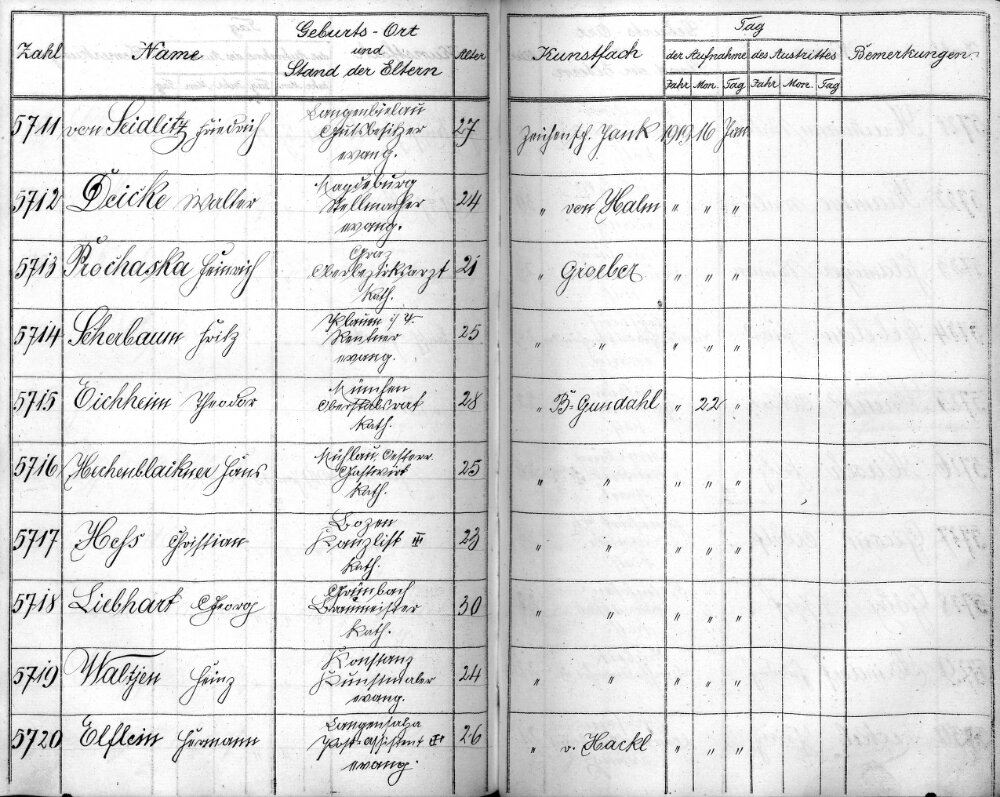 Zahl Name Geburts-Ort und Stand der Eltern Alter Kunstfach Tag der Aufnahme des Austrittes Bemerkungen
Jahr Mon. Tag Jahr Mon. Tag
5711 von Seidlitz Friedrich Langenbielau 27 Zeichensch. Jank 1919 16 Jan
Gutsbesitzer
evang.
5712 Deicke Walter Magdeburg 24 " von Halm " " "
Stellmacher
evang.
5713 Prochaska Heinrich Graz 21 " Groeber " " "
Oberbezirksarzt
kath.
5714 Scherbaum Fritz Plauen i/V. 25 " " " " "
Rentner
evang.
5715 Eichheim Theodor München 28 " B-Gundahl " 22 "
kath.
5716 Hechenblaikner Hans Mühlau, Oesterr. 25 " " " " "
Gastwirt
kath.
5717 Hess Christian Bozen 23 " " " " "
Kanzlist
kath.
5718 Liebhart Georg Grünbach 30 " " " " "
Braumeister
kath.
5719 Waltjen Heinz Konstanz 24 " " " " "
Kunstmaler
evang.
5720 Elflein Hermann Langensalza 26 " v. Hackl " " "
Postassistent
evang.